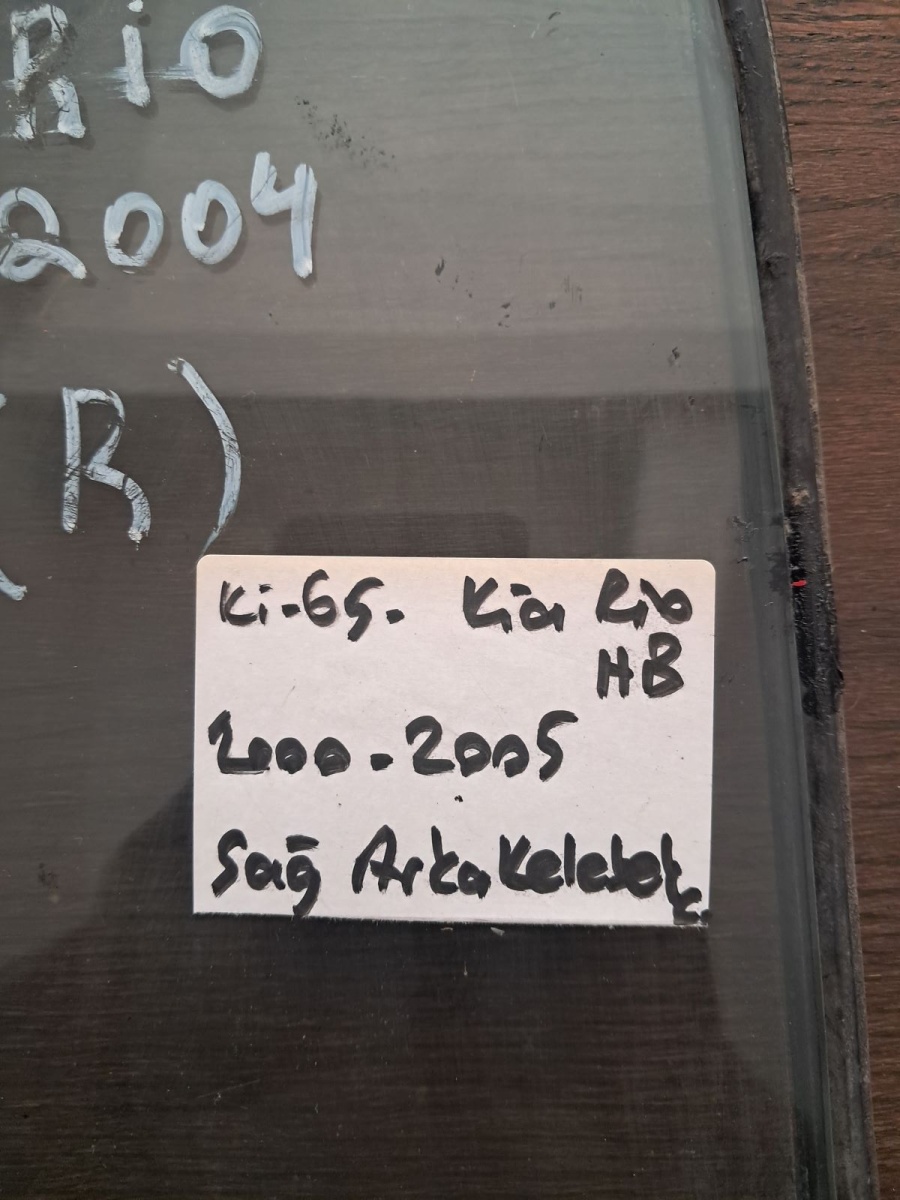 RiO
2004
(R)
Ki-65. Kia Rio
HB
2000-2005
Sağ Arka Kelebek